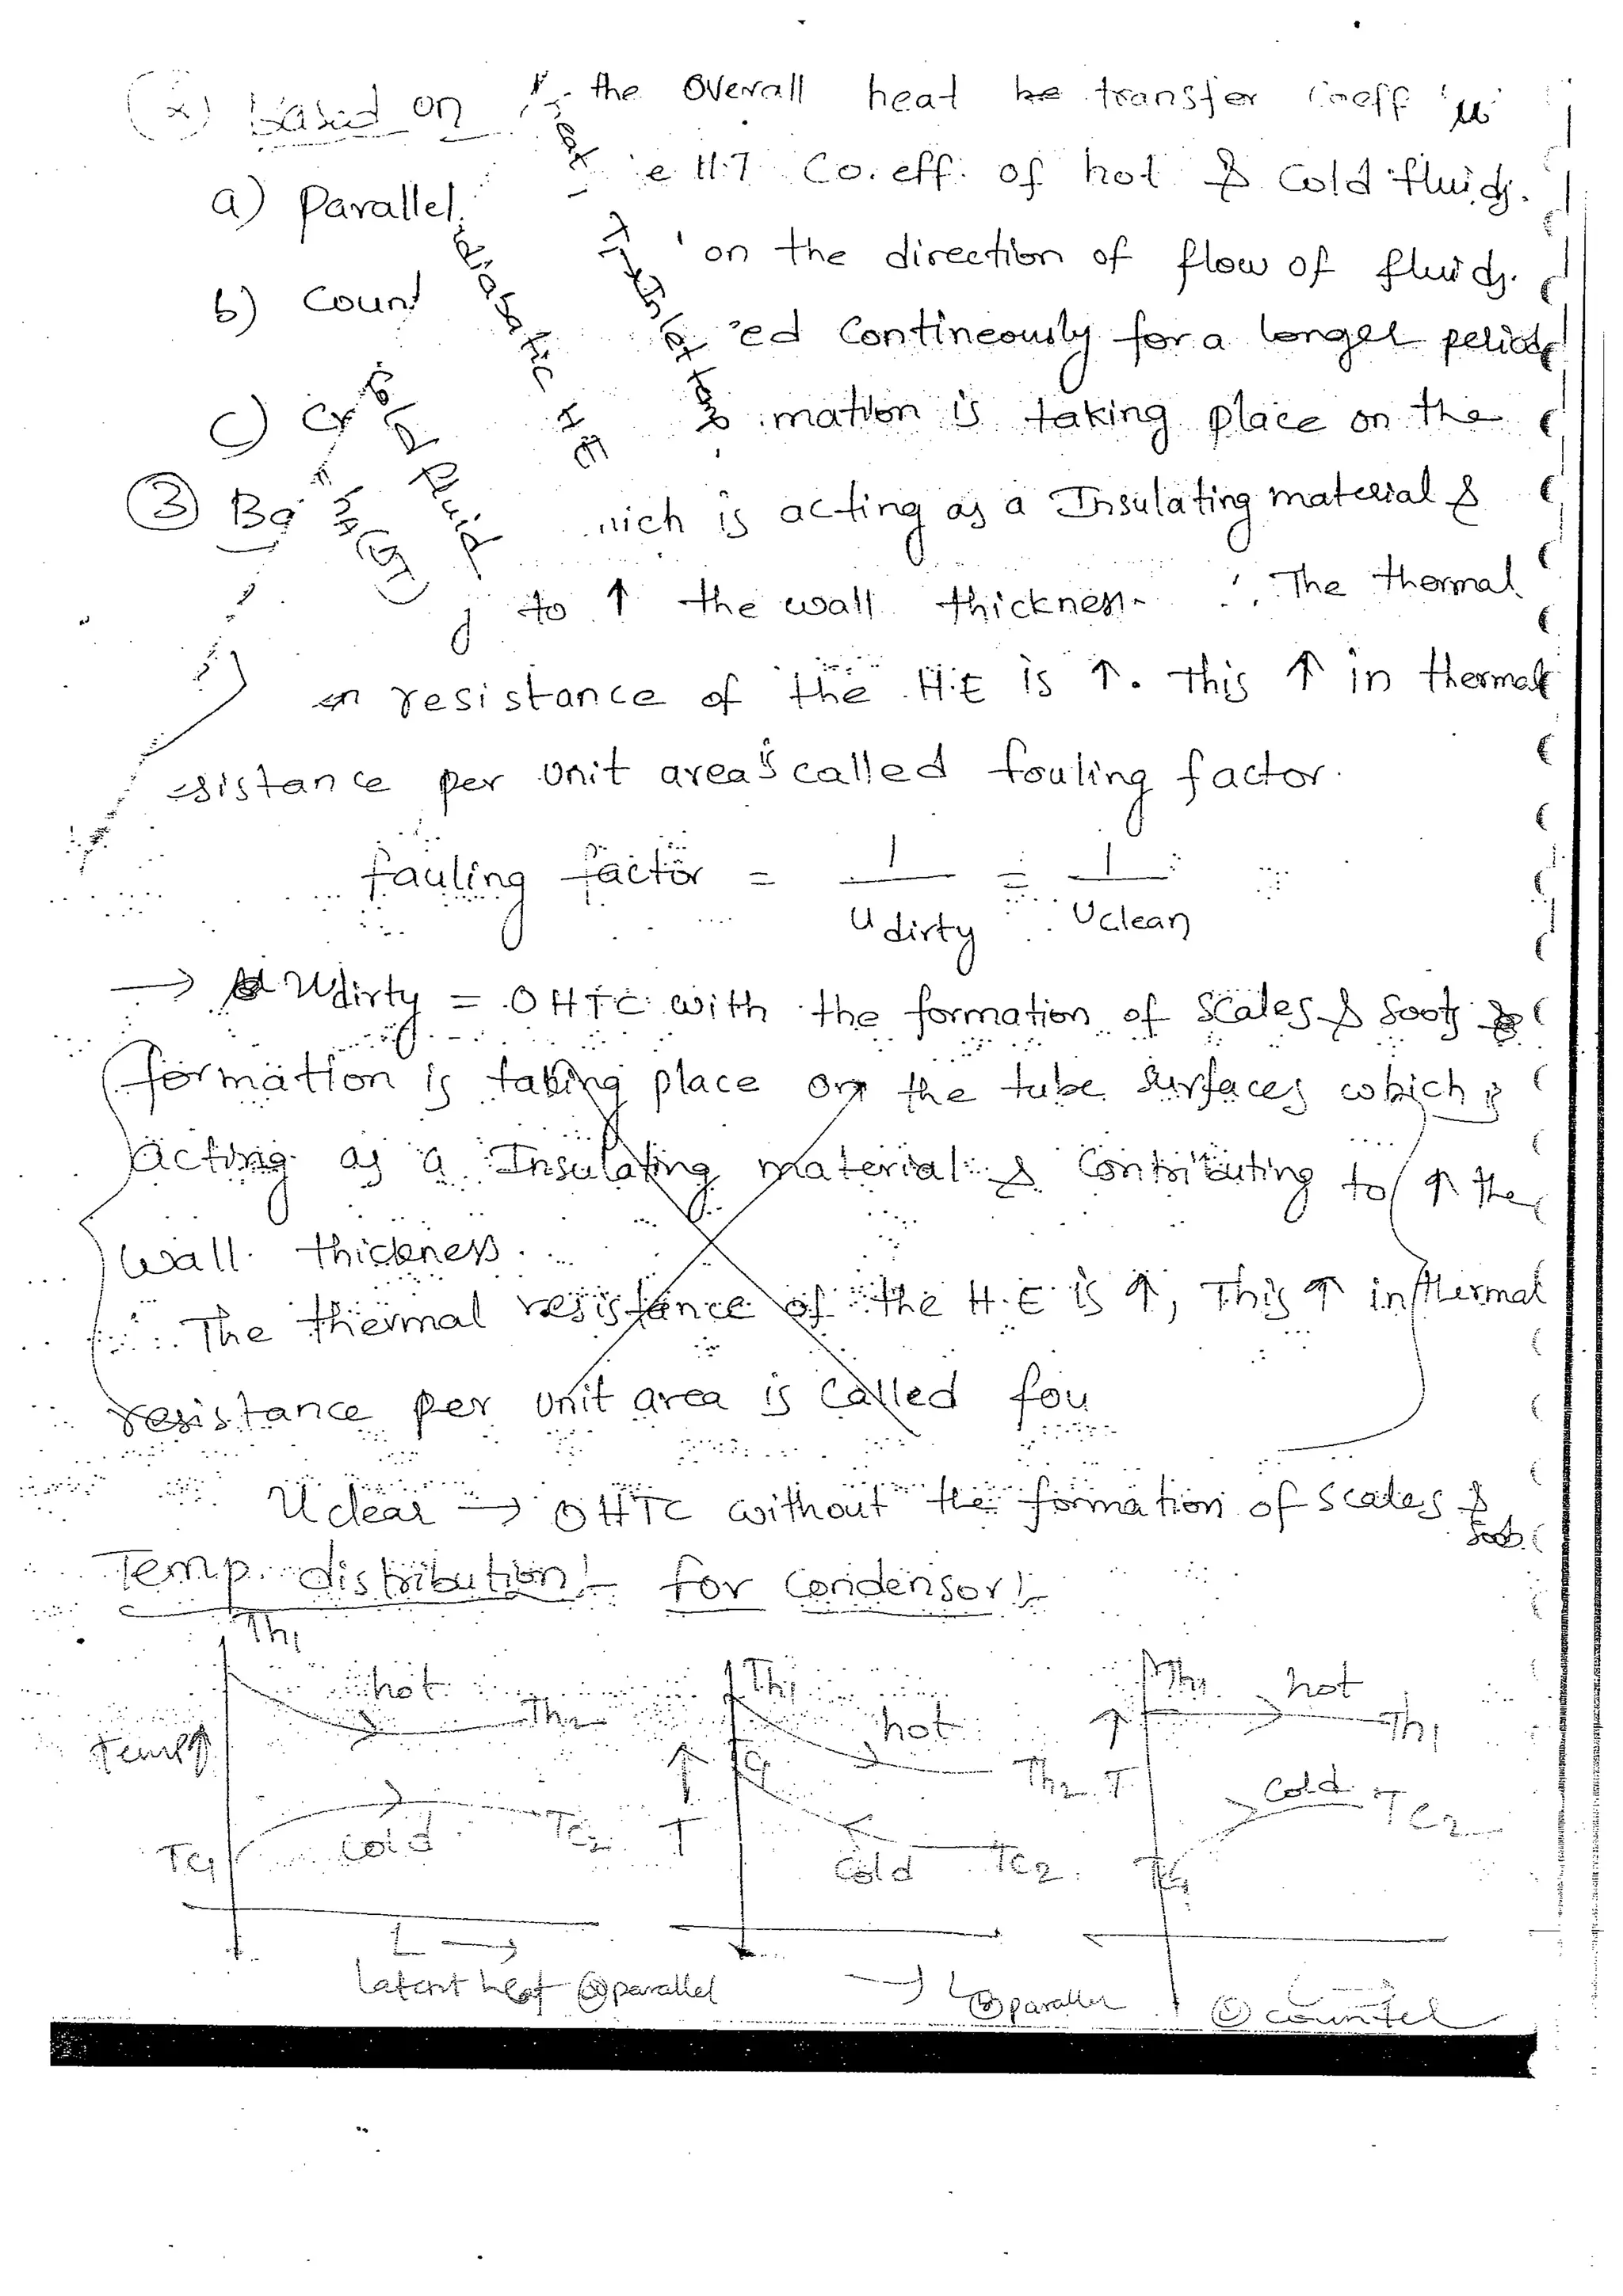 (2) Based on the Overall heat transfer Coeff 'U'
a) Parallel e H.T Co.eff. of hot & Cold fluids.
on the direction of flow of fluids.
b) Coun
ed Contineously for a longer period
c) Cr mation is taking place on the
③ Ba hich is acting as a Insulating material &
to ↑ the wall thickness. ∴ The thermal
resistance of the H.E is ↑. This ↑ in thermal
sistance per Unit area is called fouling factor.
adiabatic HE
Cold fluid
fauling factor = 1/U dirty = 1/U clean
→ Udirty = OHTC with the formation of Scales & Soots
formation is taking place on the tube Surfaces which is
acting as a Insulating material & Contributing to ↑ the
Wall thickness.
∴ The thermal resistance of the H.E is ↑, This ↑ in thermal
resistance per Unit area is Called fou
U clear → OHTC without the formation of Scales & Soots
Temp. distribution:- for Condensor:-
Th1 hot Th2
Temp↑
Tc1 cold Tc2
L →
Latent heat ⓐ parallel
Th1 hot Th2
↑ T
Tc1 Cold Tc2
→ L
ⓑ parallel
Th1 hot Th1
↑ T
Tc1 Cold Tc2
L →
ⓒ counter